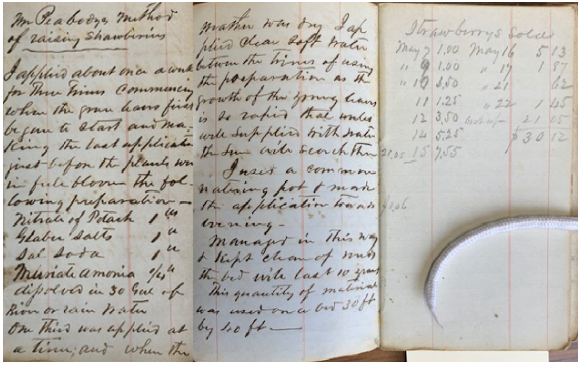 Mr Peabodys Method
of raising Strawberries
I applied about once a week
for three times commencing
when the green leaves first
began to start and ma-
king the last applicatin
just before the plants were
in full bloom the fol-
lowing preparation —
Nitrate of Potash 1 lb
Glaber Salts 1 lb
Sal Soda 1 lb
Muriate Amonia 1/4 lb
dissolved in 30 Gal of
River or rain water
One third was applied at
a time; and when the
weather was dry I ap
plied clear soft water
between the times of using
the preparation as the
growth of the young leaves
is so rapid that unless
well supplied with water
the sun will scorch them
I used a common
watering pot & made
the application towards
evening —
Managed in this way
& kept clean of weeds
the bed will last 10 years
This quantity of material
was used on a bed 30 ft
by 40 ft —
Strawberrys Soled
May 7 1.00 May 16 5 13
" 9 1.00 " 19 1 87
" 10 3.50 " 21 62
11 1.25 " 22 1 45
12 3.50 21 05
14 5.25 $30 12
15 7.55